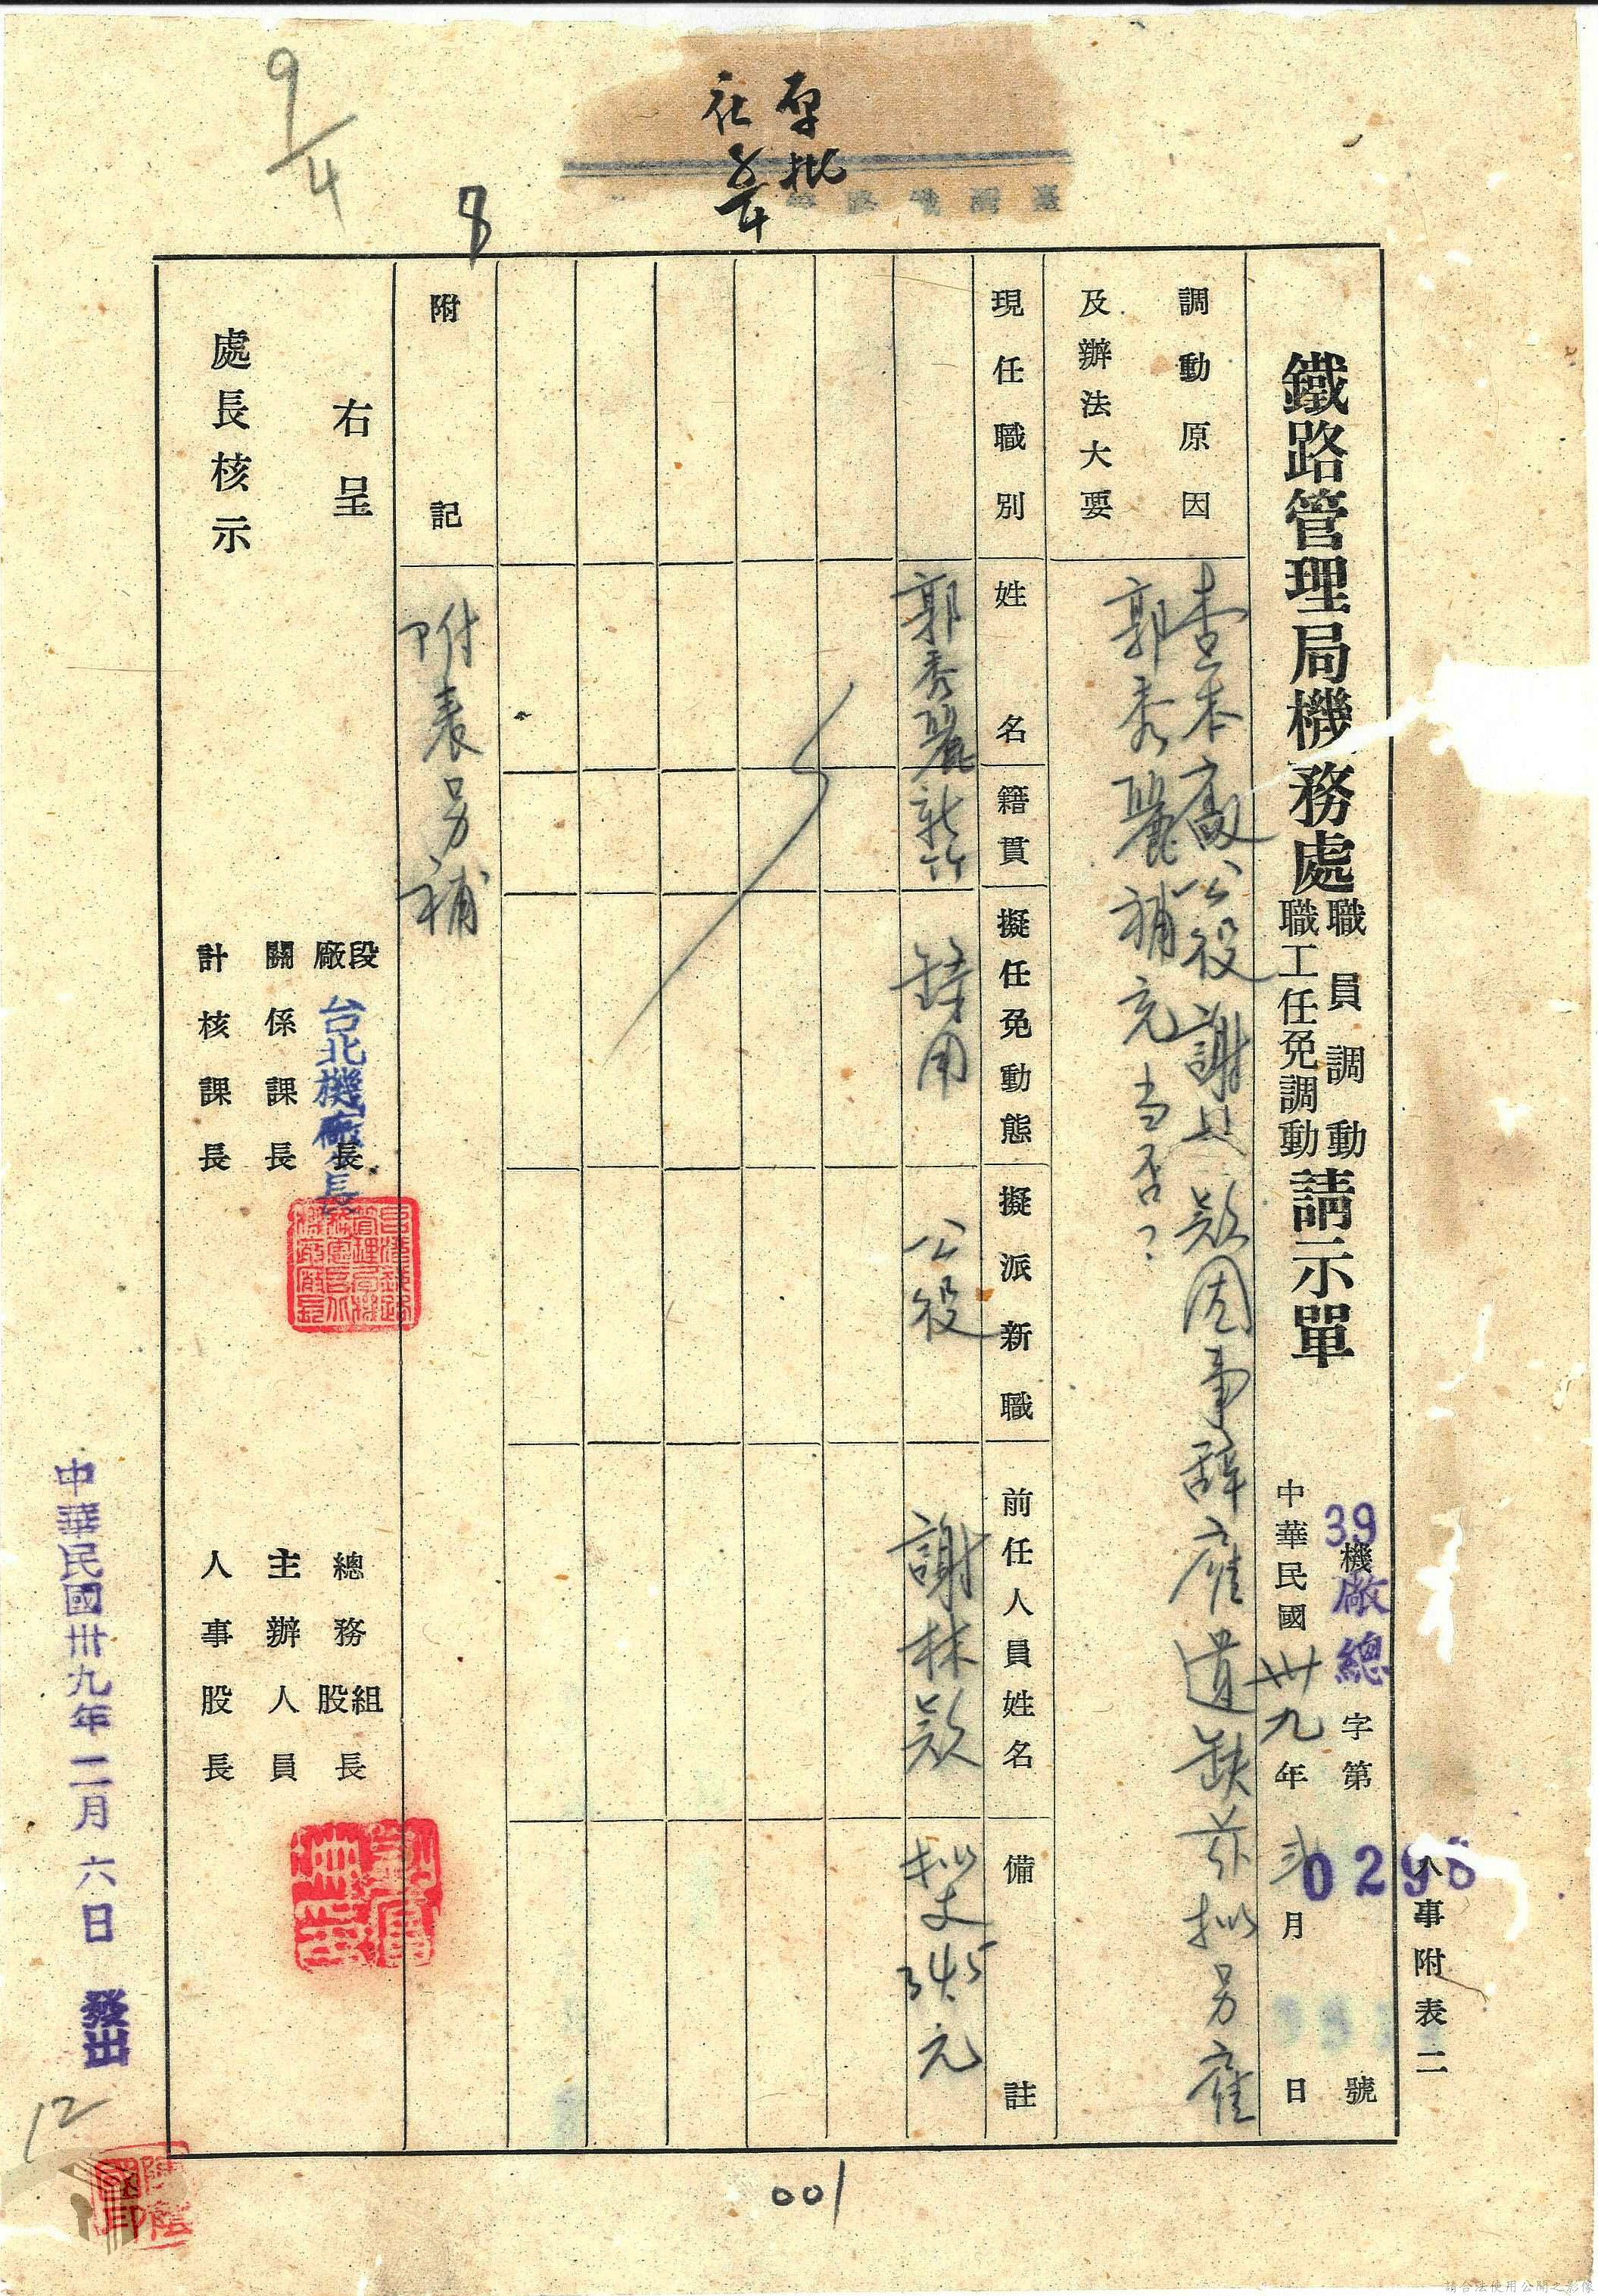 原批
在卷
9/4
8
人事附表二
鐵路管理局機務處職員調動職工任免調動請示單
39機廠總字第0298號
中華民國卅九年弍月 日
調動原因
及辦法大要
查本廠公役謝林款因事辭雇遺缺茲拟另雇
郭秀麗補充当否？
現任職別
姓名
籍貫
擬任免動態
擬派新職
前任人員姓名
備註
郭秀麗
新竹
錄用
公役
謝林款
拟支345元
附記
附表另補
右呈
處長核示
段廠長
台北機廠長
關係課長
計核課長
總務組股長
主辦人員
人事股長
中華民國卅九年二月六日 發出
12
001
請合法使用公開之影像